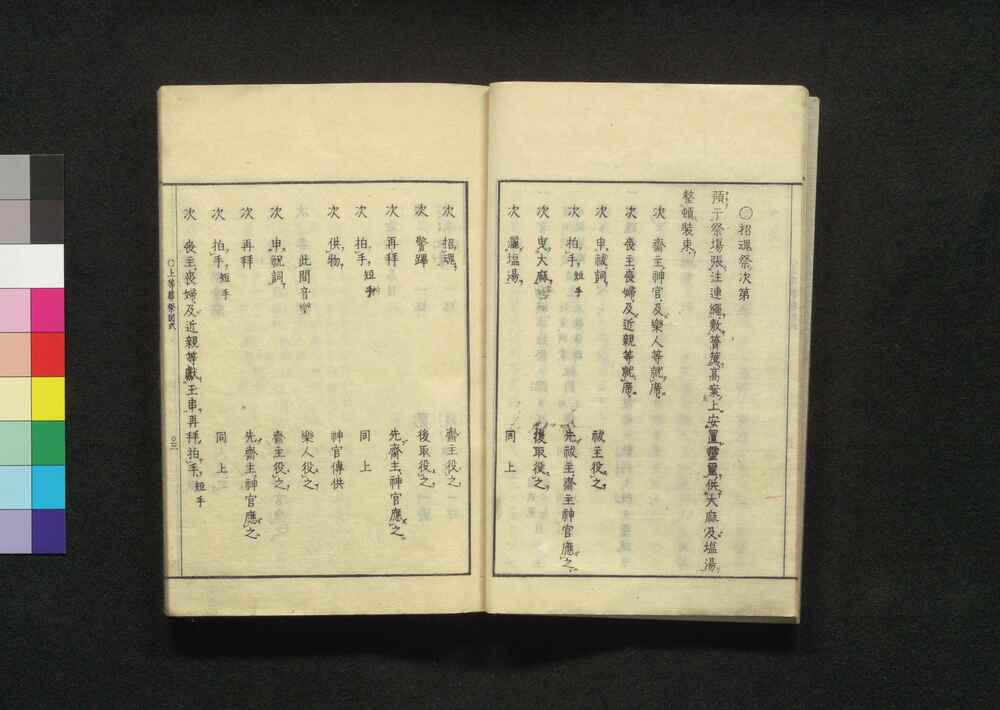 ○招魂祭次第
預于祭場張注連繩敷薦高案上安置靈璽供大麻及塩湯
整頓裝束
次 齋主神官及樂人等就席
次 喪主喪婦及近親等就席
次 申祓詞 祓主役之
次 拍手短手 先祓主齋主神官應之
次 曳大麻 後取役之
次 灑塩湯 同上
次 招魂 齋主役之
次 警蹕 後取役之
次 再拜 先齋主神官應之
次 拍手短手 同上
次 供物 神官傳供
此間音樂 樂人役之
次 申祝詞 齋主役之
次 再拜 先齋主神官應之
次 拍手短手 同上
次 喪主喪婦及近親等獻玉串再拜拍手短手
○上等葬祭圖式
○三